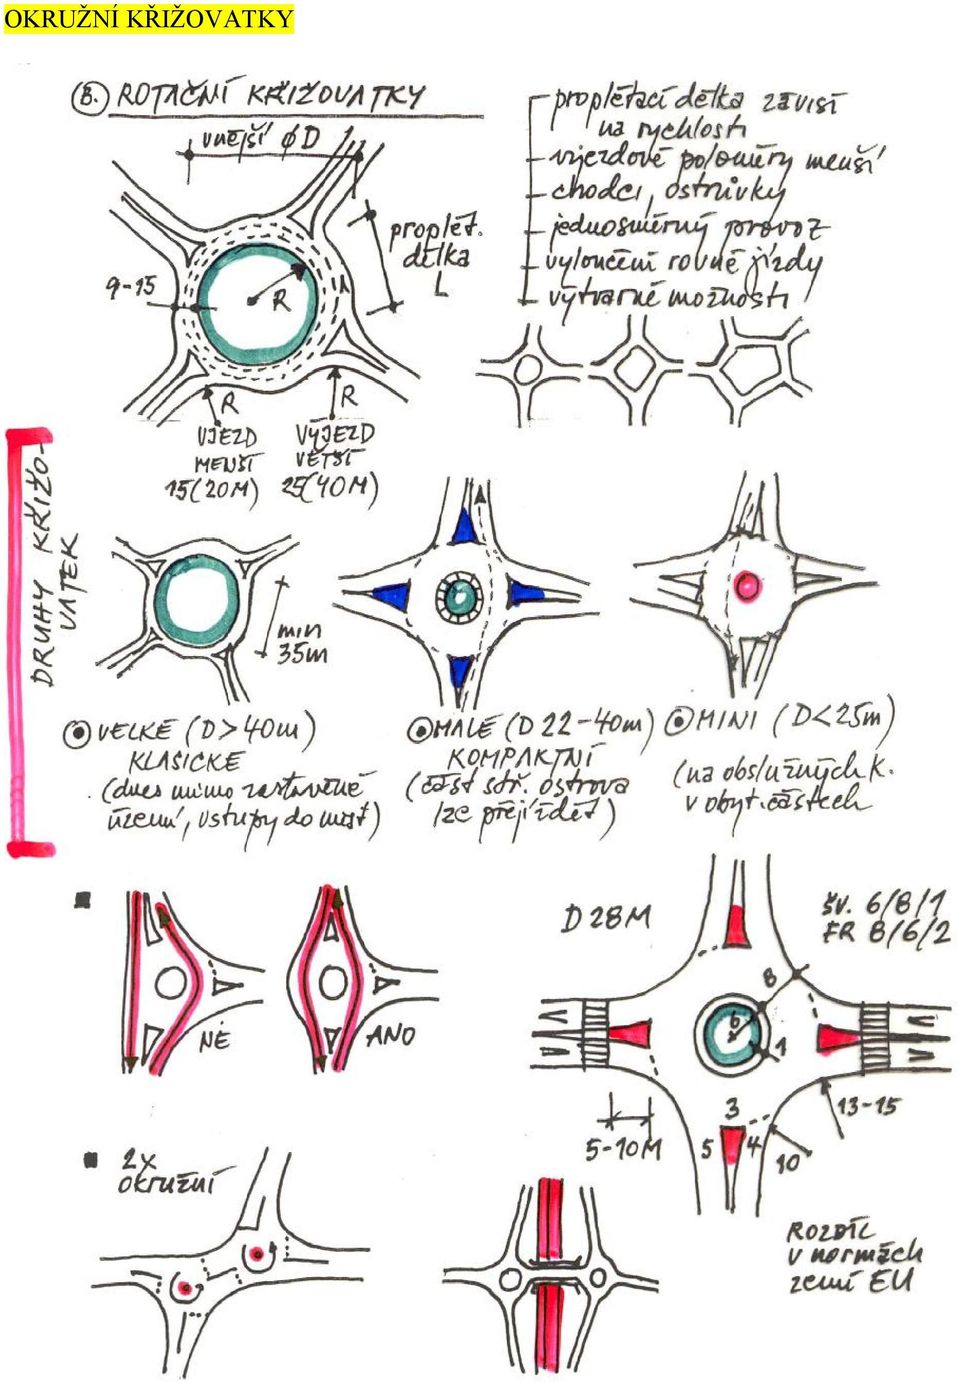 OKRUŽNÍ KŘIŽOVATKY
B. ROTAČNÍ KŘIŽOVATKY
vnější ØD
proplét.
délka
L
9-15
R
R
R
VJEZD
MENŠÍ
15(20M)
VÝJEZD
VĚTŠÍ
25(40M)
proplétací délka závisí
na rychlosti
vjezdové poloměry menší
chodci, ostrůvky
jednosměrný provoz
vyloučení rovné jízdy
výtvarné možnosti
DRUHY KŘIŽO-
VATEK
min
35m
VELKÉ (D>40m)
KLASICKÉ
(dnes mimo zastavěné
území, vstupy do měst)
MALÉ (D 22-40m)
KOMPAKTNÍ
(část stř. ostrova
lze přejíždět)
MINI (D<25m)
(na obslužných k.
v obyt. částech
NE
ANO
D 28M
ŠV. 6/8/1
FR 8/6/2
8
6
1
13-15
3
5
4
10
5-10M
2x
okružní
ROZDÍL
v normách
zemí EU